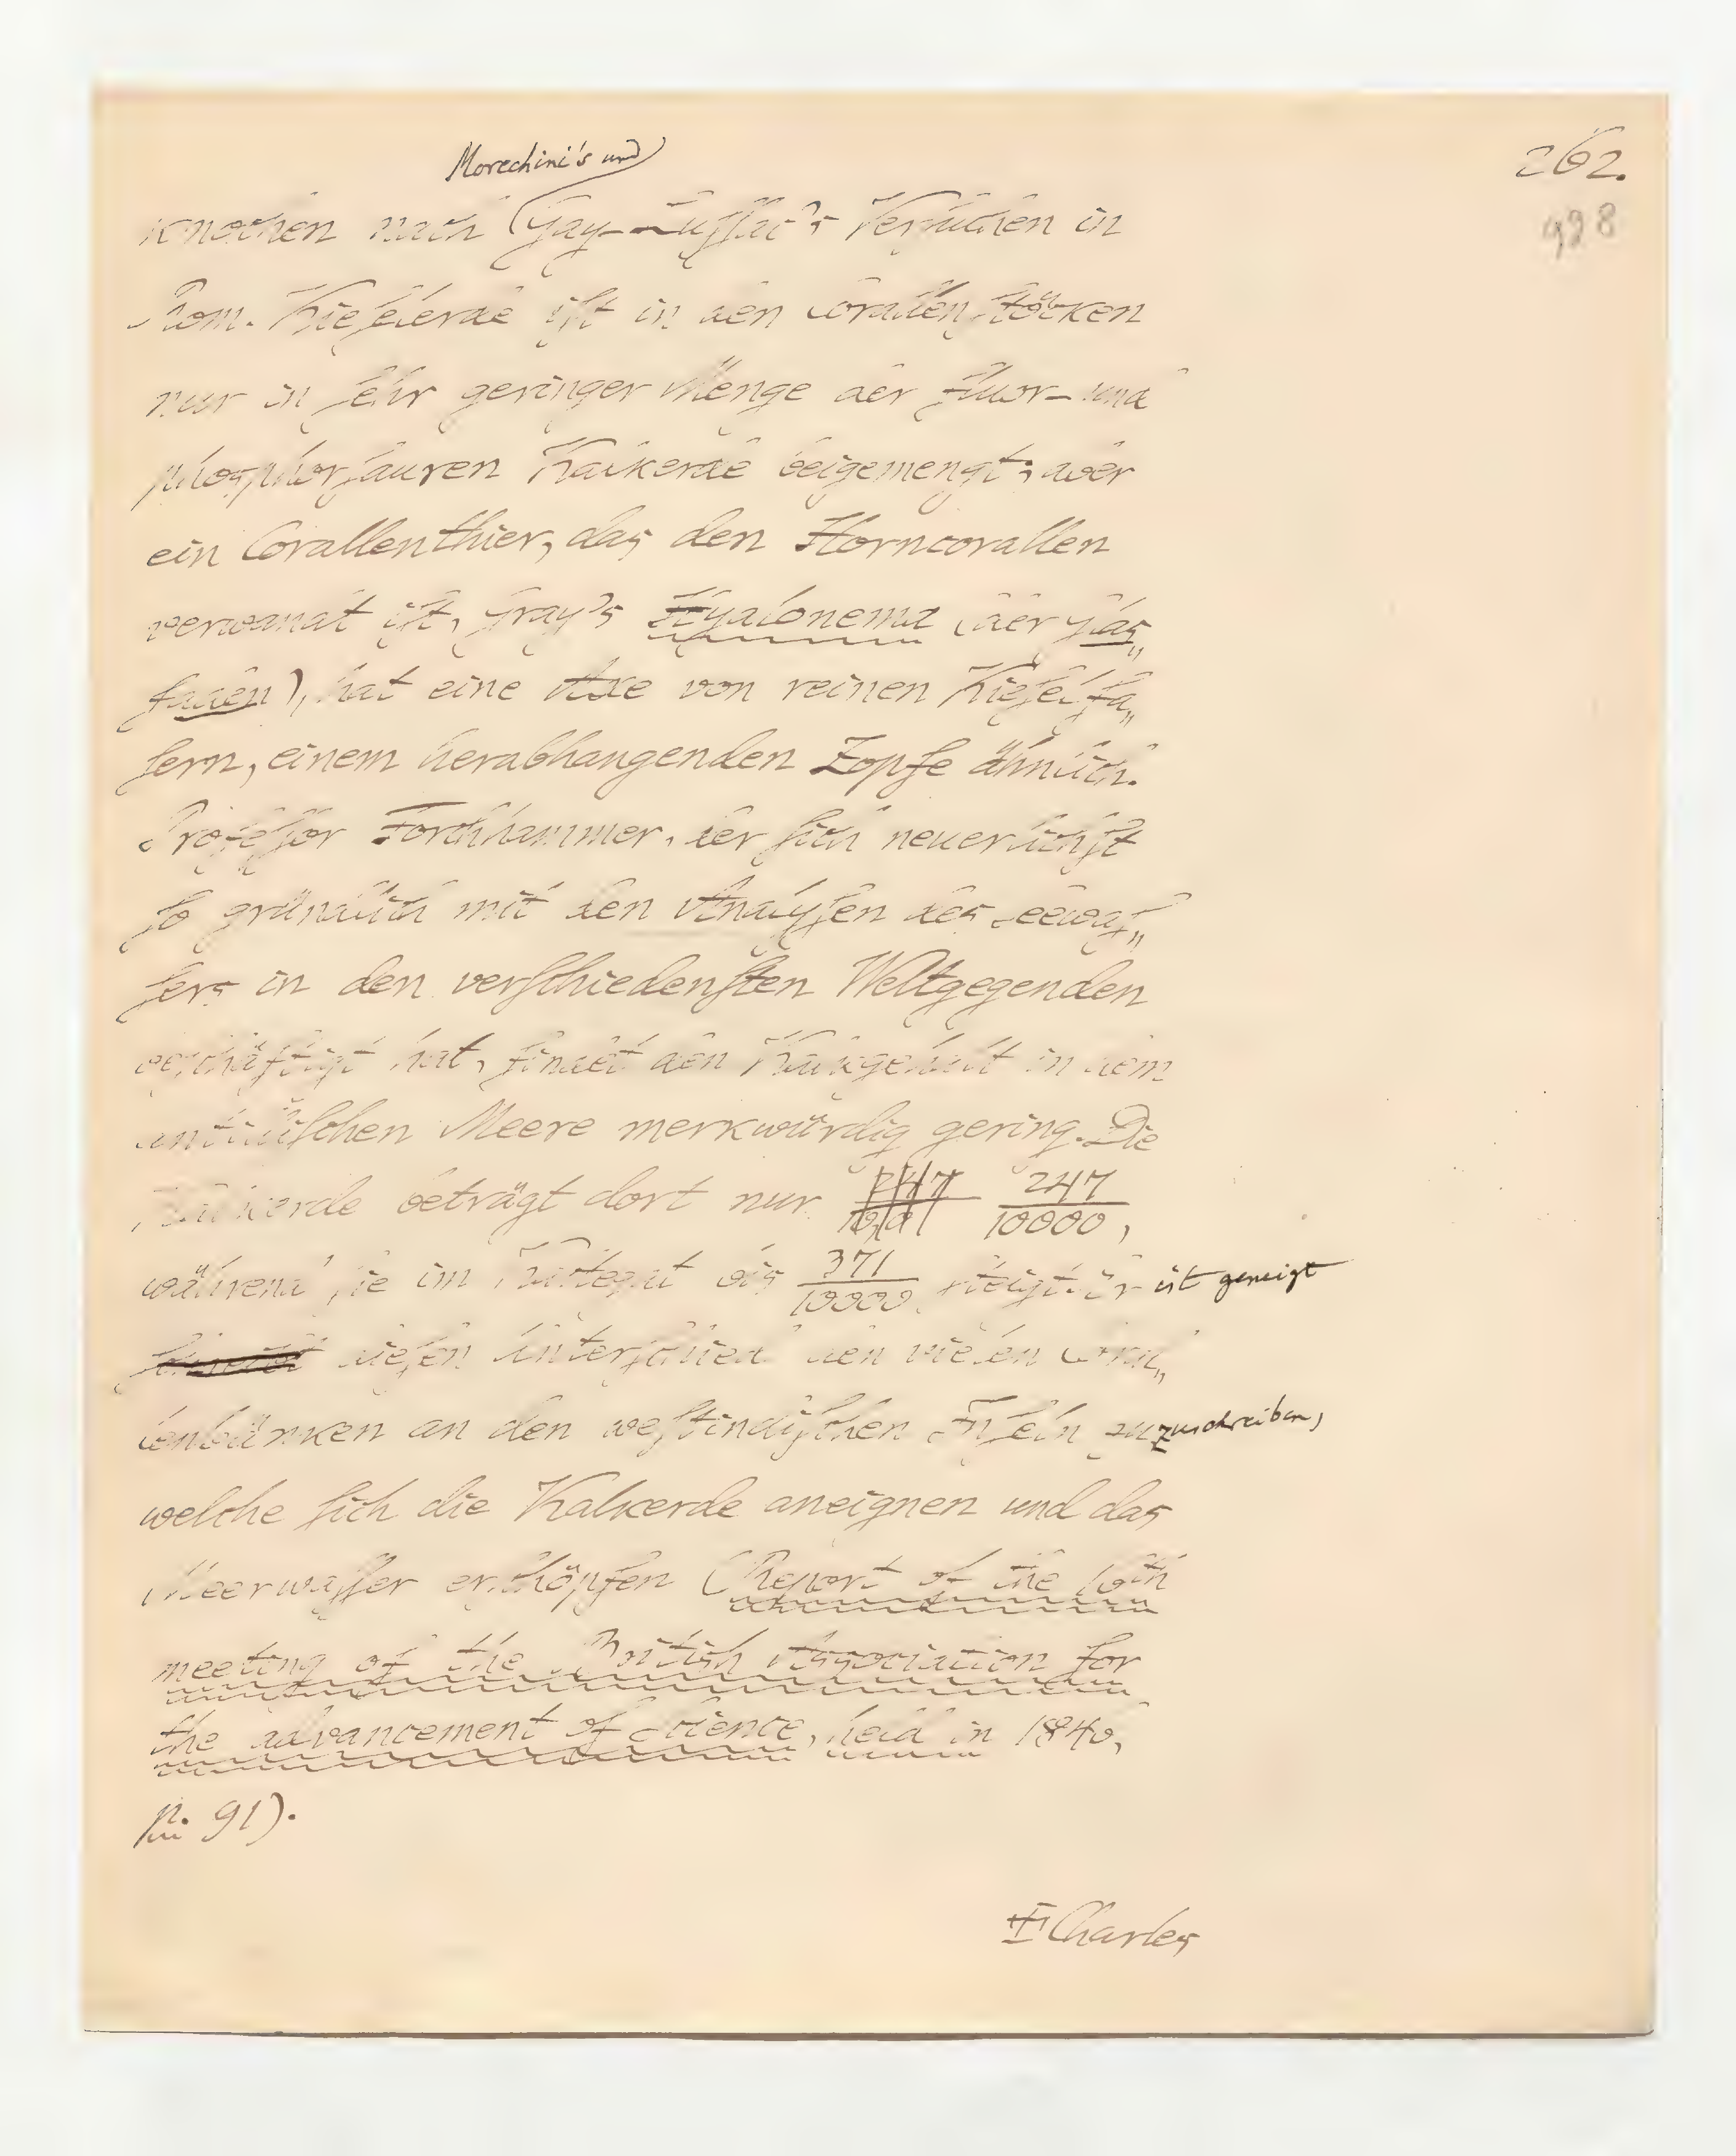 262.
928
Morechini's und
Knochen nach Gay-Lussac's Versuchen in
Rom. Kieselerde ist in den Corallenstöcken
nur in sehr geringer Menge der fluor- und
phosphorsauren Kalkerde beigemengt; aber
ein Corallenthier, das den Horncorallen
verwandt ist, Gray's Hyalonema (der Glas„
faden), hat eine Axe von reinen Kieselfa„
sern, einem herabhangenden Zopfe ähnlich.
Professor Forchhammer, der sich neuerlichst
so gründlich mit den Analysen des Seewas„
sers in den verschiedensten Weltgegenden
beschäftigt hat, findet den Kalkgehalt in dem
antillischen Meere merkwürdig gering. Die
Kalkerde beträgt dort nur 247/10000,
während sie im Kattegat bis 371/10000 steigt. Er ist geneigt
diesen Unterschied den vielen Coral„
lenbänken an den westindischen Inseln zuzuschreiben,
welche sich die Kalkerde aneignen und das
Meerwasser erschöpfen (Report of the 16th
meeting of the British Association for
the advancement of Science, held in 1846,
p. 91).
Charles